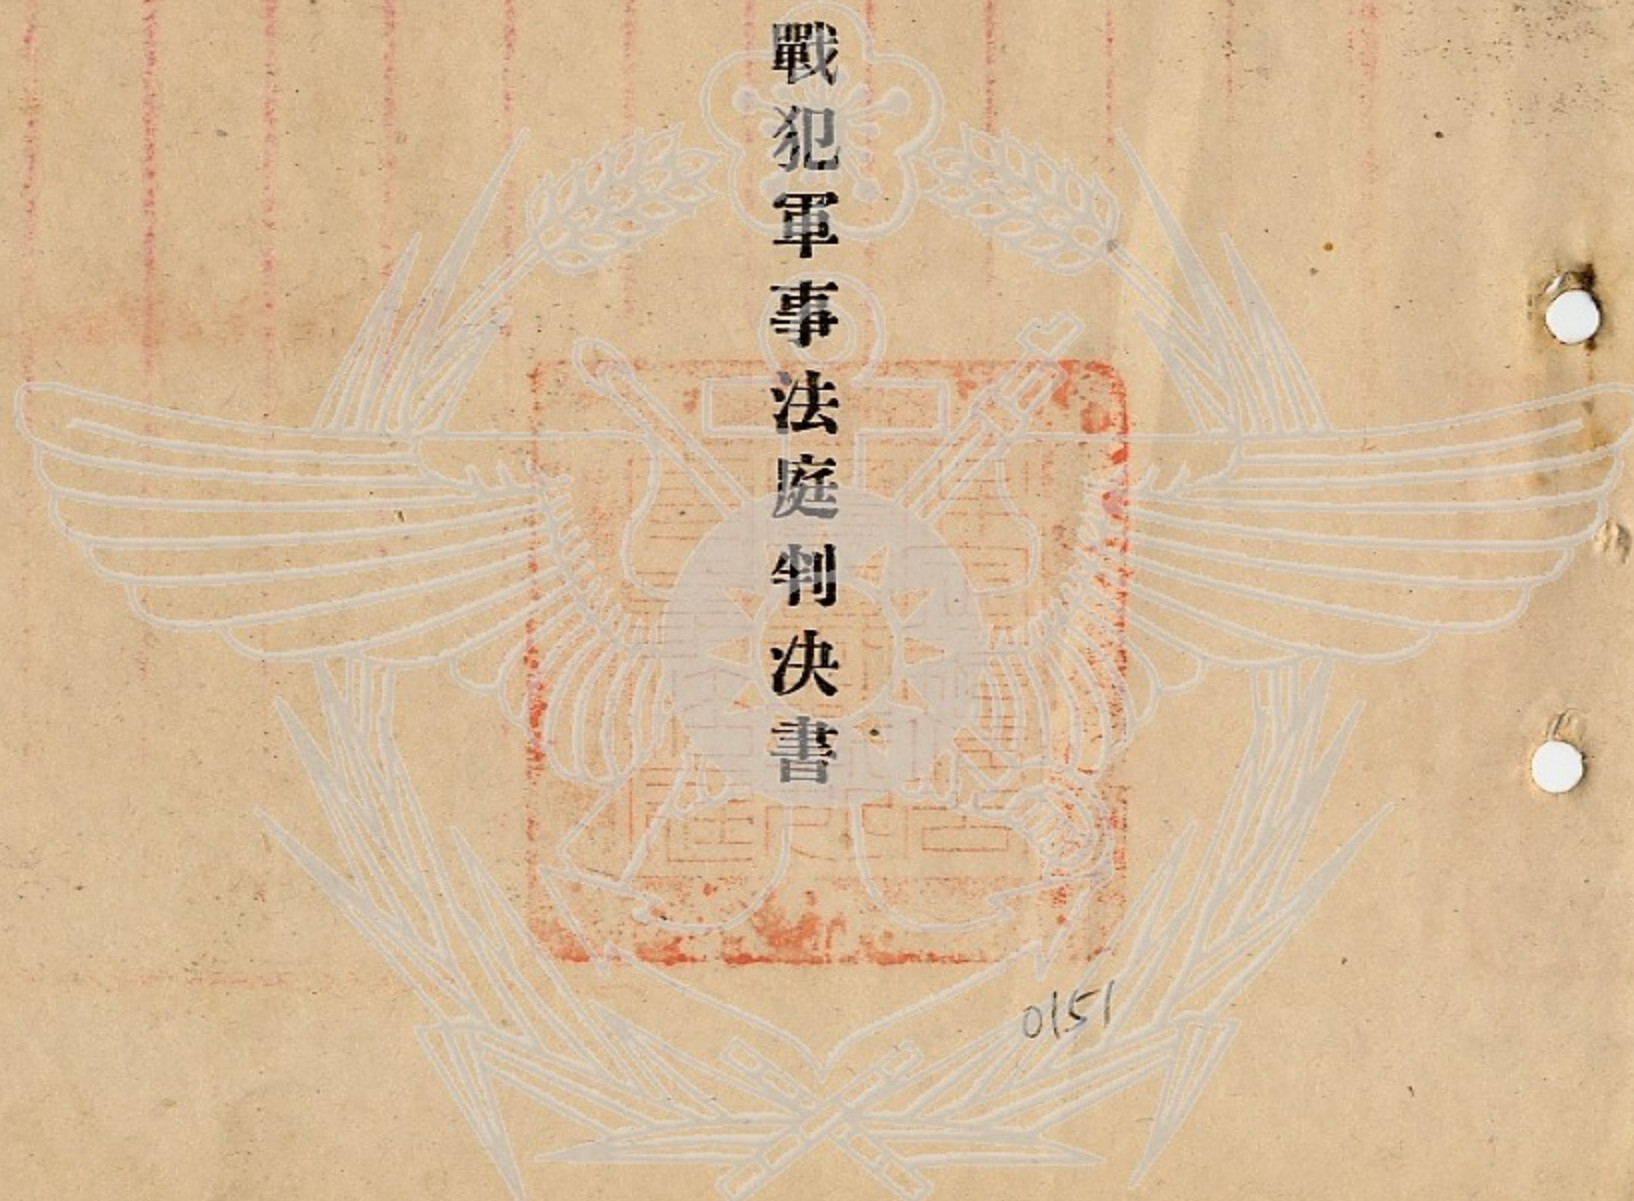 戰犯軍事法庭判决書
0151